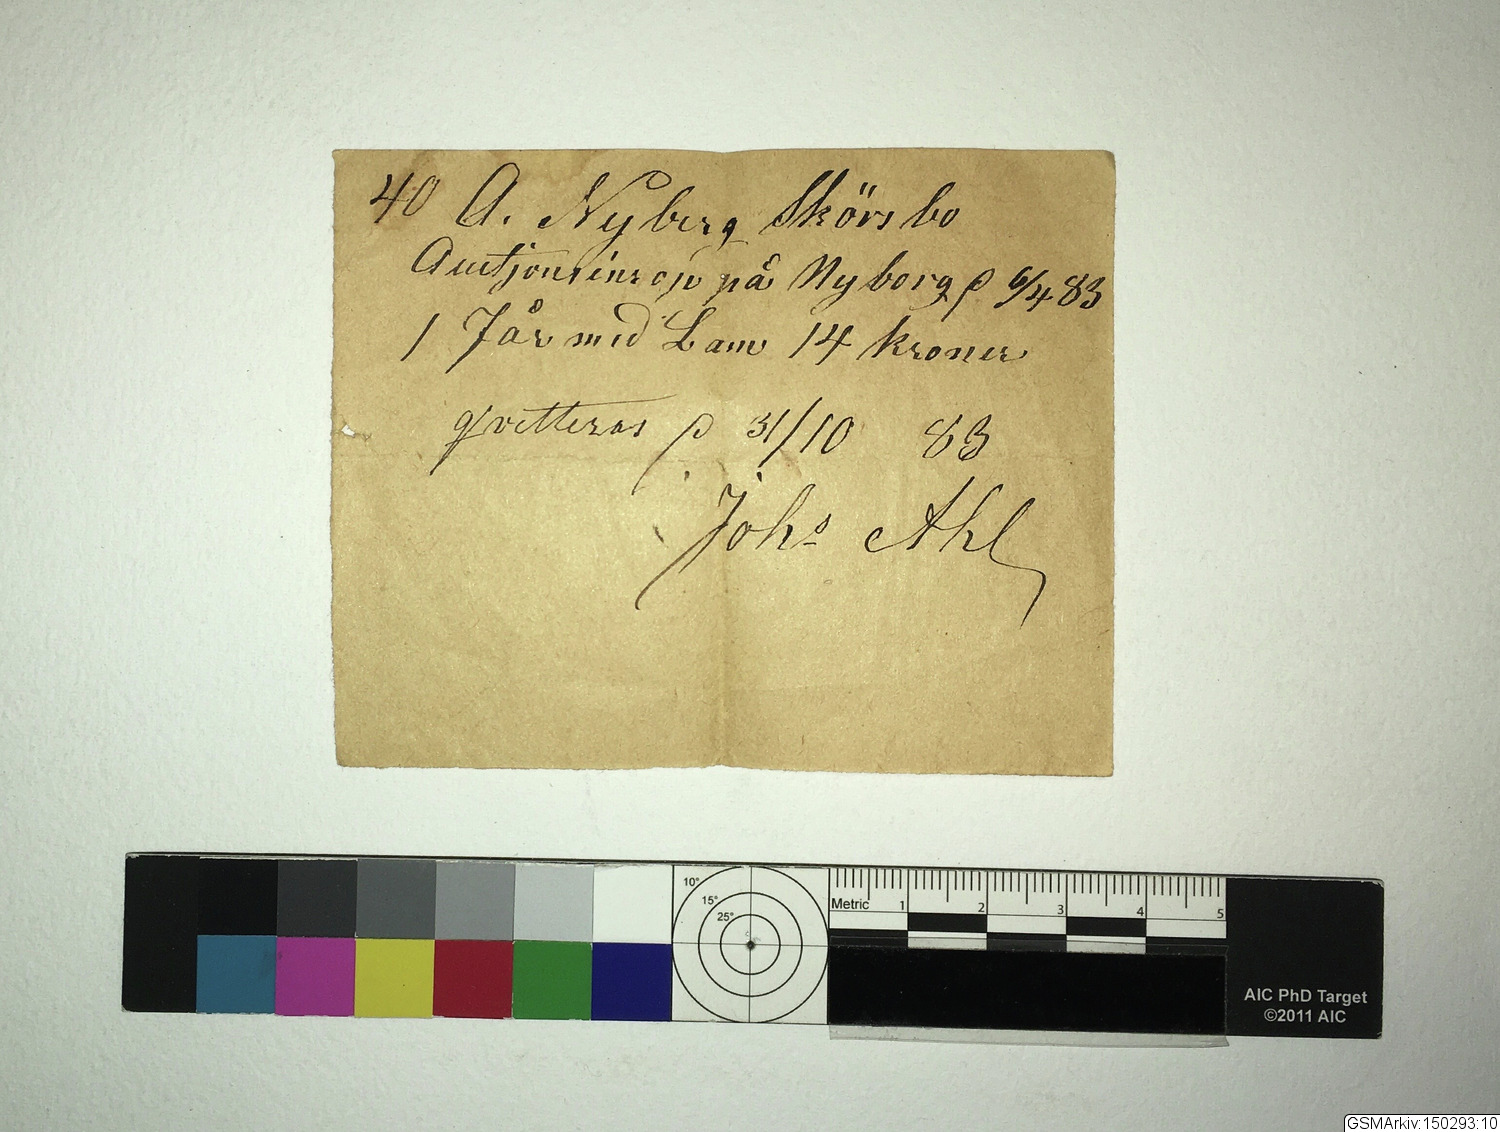 40 A. Nyberg Skörsbo
Auctjonsinrop på Nyborg d 6/4 83
1 Får med Lam 14 kroner
qvitteras d 31/10 83
Johs Ahl
10° 15° 25°
Metric 1 2 3 4 5
AIC PhD Target
©2011 AIC
GSMArkiv:150293:10